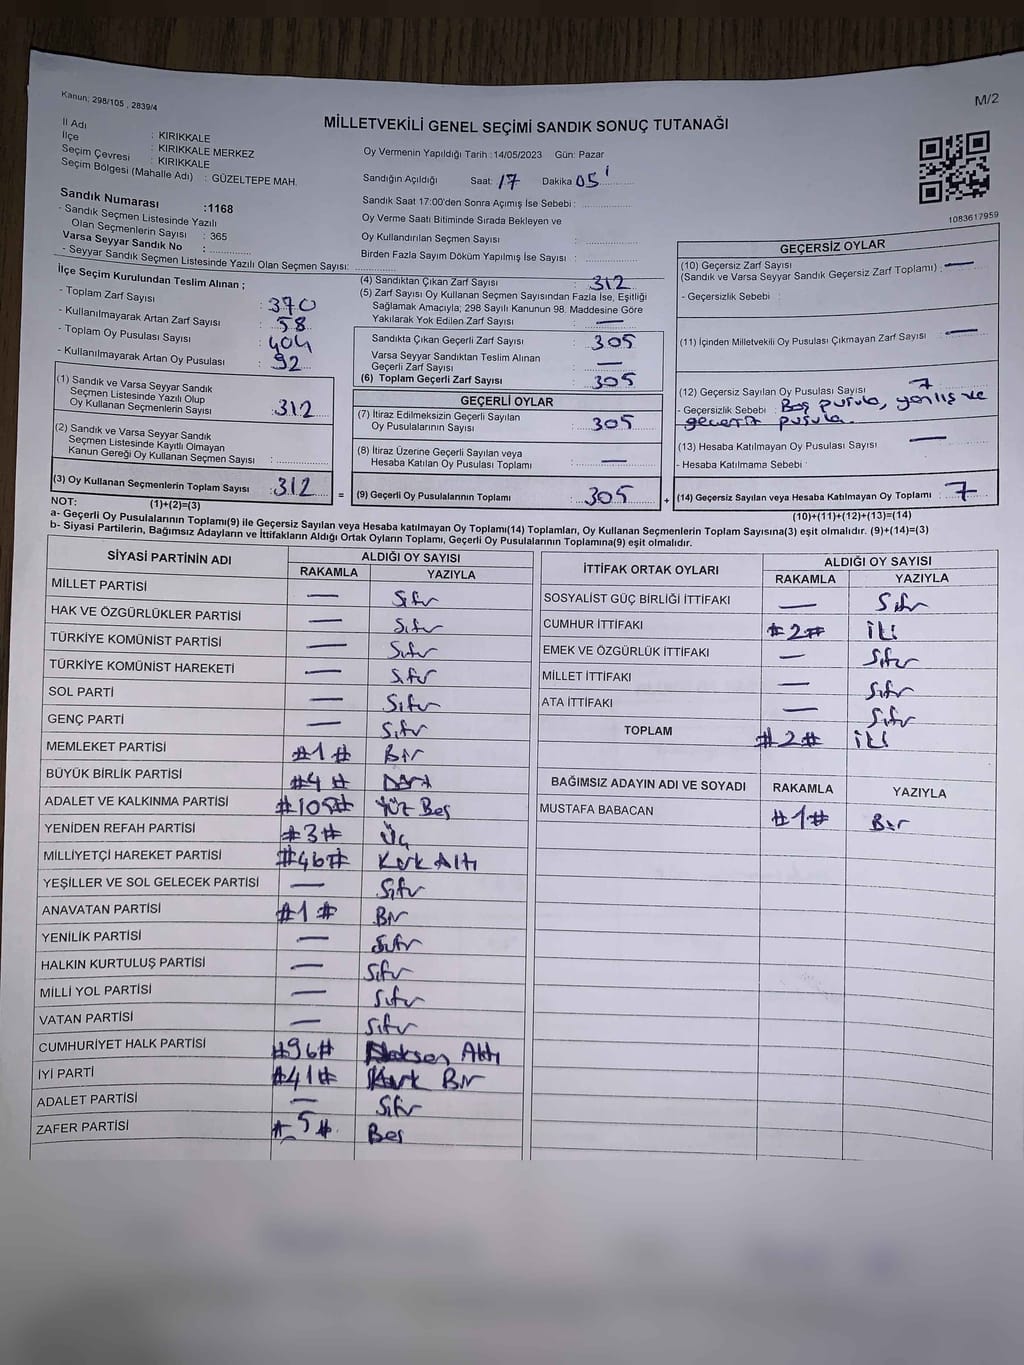 Kanun; 298/105 , 2839/4
M/2
MİLLETVEKİLİ GENEL SEÇİMİ SANDIK SONUÇ TUTANAĞI
İl Adı : KIRIKKALE
İlçe : KIRIKKALE MERKEZ
Seçim Çevresi : KIRIKKALE
Seçim Bölgesi (Mahalle Adı) : GÜZELTEPE MAH.
Oy Vermenin Yapıldığı Tarih :14/05/2023 Gün: Pazar
Sandığın Açıldığı Saat: 17 Dakika 05'
Sandık Saat 17:00'den Sonra Açımış İse Sebebi :
Oy Verme Saati Bitiminde Sırada Bekleyen ve
Oy Kullandırılan Seçmen Sayısı :
Birden Fazla Sayım Döküm Yapılmış İse Sayısı :
1083617959
Sandık Numarası :1168
- Sandık Seçmen Listesinde Yazılı
Olan Seçmenlerin Sayısı : 365
Varsa Seyyar Sandık No :
- Seyyar Sandık Seçmen Listesinde Yazılı Olan Seçmen Sayısı:
İlçe Seçim Kurulundan Teslim Alınan ;
- Toplam Zarf Sayısı : 370
- Kullanılmayarak Artan Zarf Sayısı : 58
- Toplam Oy Pusulası Sayısı : 404
- Kullanılmayarak Artan Oy Pusulası : 92
(1) Sandık ve Varsa Seyyar Sandık
Seçmen Listesinde Yazılı Olup
Oy Kullanan Seçmenlerin Sayısı : 312
(2) Sandık ve Varsa Seyyar Sandık
Seçmen Listesinde Kayıtlı Olmayan
Kanun Gereği Oy Kullanan Seçmen Sayısı :
(3) Oy Kullanan Seçmenlerin Toplam Sayısı : 312
(1)+(2)=(3)
(4) Sandıktan Çıkan Zarf Sayısı : 312
(5) Zarf Sayısı Oy Kullanan Seçmen Sayısından Fazla İse, Eşitliği
Sağlamak Amacıyla; 298 Sayılı Kanunun 98. Maddesine Göre
Yakılarak Yok Edilen Zarf Sayısı : —
Sandıkta Çıkan Geçerli Zarf Sayısı : 305
Varsa Seyyar Sandıktan Teslim Alınan
Geçerli Zarf Sayısı : —
(6) Toplam Geçerli Zarf Sayısı : 305
GEÇERLİ OYLAR
(7) İtiraz Edilmeksizin Geçerli Sayılan
Oy Pusulalarının Sayısı : 305
(8) İtiraz Üzerine Geçerli Sayılan veya
Hesaba Katılan Oy Pusulası Toplamı : —
= (9) Geçerli Oy Pusulalarının Toplamı : 305 +
GEÇERSİZ OYLAR
(10) Geçersiz Zarf Sayısı
(Sandık ve Varsa Seyyar Sandık Geçersiz Zarf Toplamı) : —
- Geçersizlik Sebebi :
(11) İçinden Milletvekili Oy Pusulası Çıkmayan Zarf Sayısı : —
(12) Geçersiz Sayılan Oy Pusulası Sayısı : 7
- Geçersizlik Sebebi : Boş pusula, yanlış ve
geçersiz pusula.
(13) Hesaba Katılmayan Oy Pusulası Sayısı : —
- Hesaba Katılmama Sebebi :
(14) Geçersiz Sayılan veya Hesaba Katılmayan Oy Toplamı : 7
(10)+(11)+(12)+(13)=(14)
NOT:
a- Geçerli Oy Pusulalarının Toplamı(9) ile Geçersiz Sayılan veya Hesaba katılmayan Oy Toplamı(14) Toplamları, Oy Kullanan Seçmenlerin Toplam Sayısına(3) eşit olmalıdır. (9)+(14)=(3)
b- Siyasi Partilerin, Bağımsız Adayların ve İttifakların Aldığı Ortak Oyların Toplamı, Geçerli Oy Pusulalarının Toplamına(9) eşit olmalıdır.
SİYASİ PARTİNİN ADI ALDIĞI OY SAYISI
RAKAMLA YAZIYLA
MİLLET PARTİSİ — Sıfır
HAK VE ÖZGÜRLÜKLER PARTİSİ — Sıfır
TÜRKİYE KOMÜNİST PARTİSİ — Sıfır
TÜRKİYE KOMÜNİST HAREKETİ — Sıfır
SOL PARTİ — Sıfır
GENÇ PARTİ — Sıfır
MEMLEKET PARTİSİ #1# Bir
BÜYÜK BİRLİK PARTİSİ #4# Dört
ADALET VE KALKINMA PARTİSİ #105# Yüz Beş
YENİDEN REFAH PARTİSİ #3# Üç
MİLLİYETÇİ HAREKET PARTİSİ #46# Kırk Altı
YEŞİLLER VE SOL GELECEK PARTİSİ — Sıfır
ANAVATAN PARTİSİ #1# Bir
YENİLİK PARTİSİ — Sıfır
HALKIN KURTULUŞ PARTİSİ — Sıfır
MİLLİ YOL PARTİSİ — Sıfır
VATAN PARTİSİ — Sıfır
CUMHURİYET HALK PARTİSİ #96# Altı
İYİ PARTİ #41# Kırk Bir
ADALET PARTİSİ — Sıfır
ZAFER PARTİSİ #5# Beş
İTTİFAK ORTAK OYLARI ALDIĞI OY SAYISI
RAKAMLA YAZIYLA
SOSYALİST GÜÇ BİRLİĞİ İTTİFAKI — Sıfır
CUMHUR İTTİFAKI #2# İki
EMEK VE ÖZGÜRLÜK İTTİFAKI — Sıfır
MİLLET İTTİFAKI — Sıfır
ATA İTTİFAKI — Sıfır
TOPLAM #2# İki
BAĞIMSIZ ADAYIN ADI VE SOYADI RAKAMLA YAZIYLA
MUSTAFA BABACAN #1# Bir